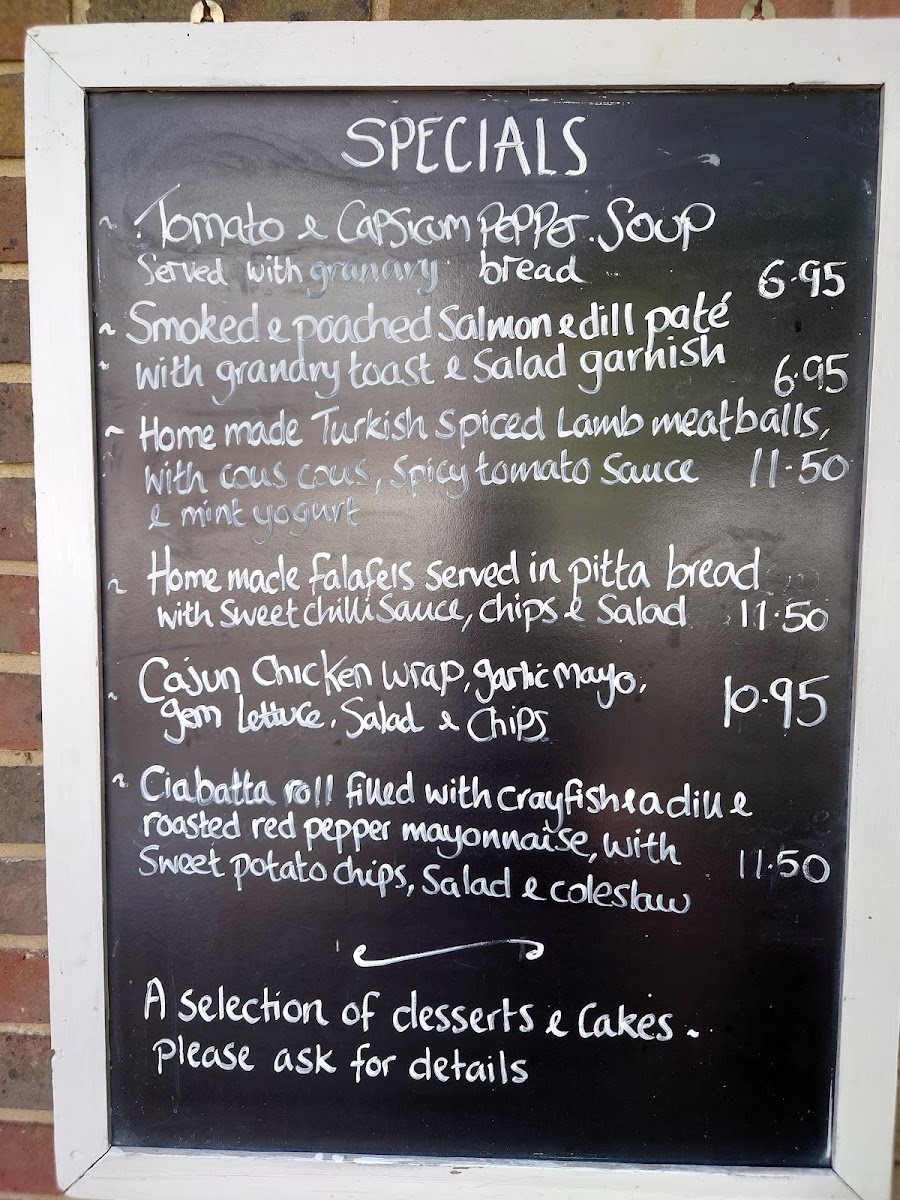 SPECIALS
~ Tomato & Capsicum Pepper Soup
Served with granary bread 6.95
~ Smoked & poached Salmon & dill paté
with granary toast & Salad garnish 6.95
~ Home made Turkish Spiced Lamb meatballs,
with cous cous, Spicy tomato Sauce 11.50
& mint yogurt
~ Home made falafels served in pitta bread
with Sweet chilli Sauce, chips & Salad 11.50
~ Cajun Chicken wrap, garlic mayo,
gem lettuce, Salad & Chips 10.95
~ Ciabatta roll filled with crayfish & a dill &
roasted red pepper mayonnaise, with
Sweet potato chips, Salad & coleslaw 11.50
A selection of desserts & Cakes ~
Please ask for details